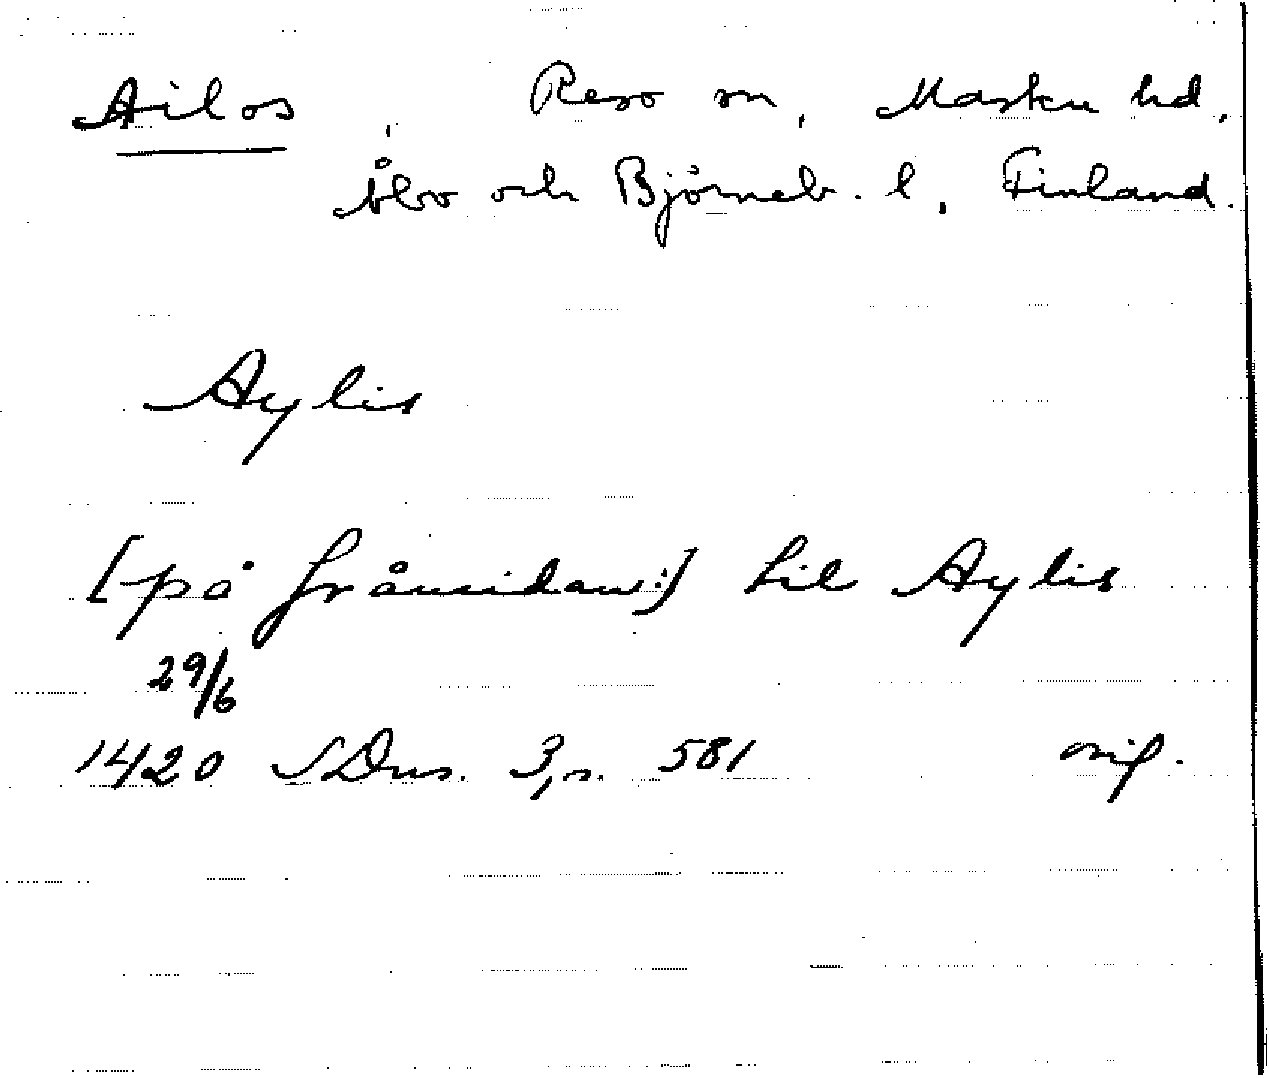 Ailos, Reso sn, Masku hd,
Åbo och Björneb. l, Finland.
Aylis
[på frånsidan:] til Aylis
29/6
1420 SDns. 3, s. 581 orig.